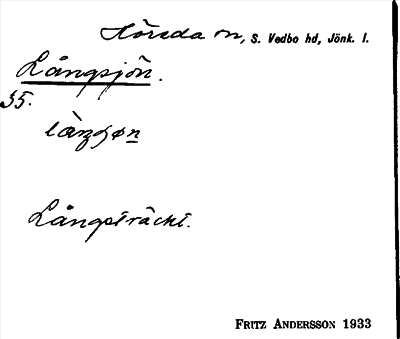 Höreda sn, S. Vedbo hd, Jönk. l.
Långsjön.
35.
Långsträckt.
FRITZ ANDERSSON 1933